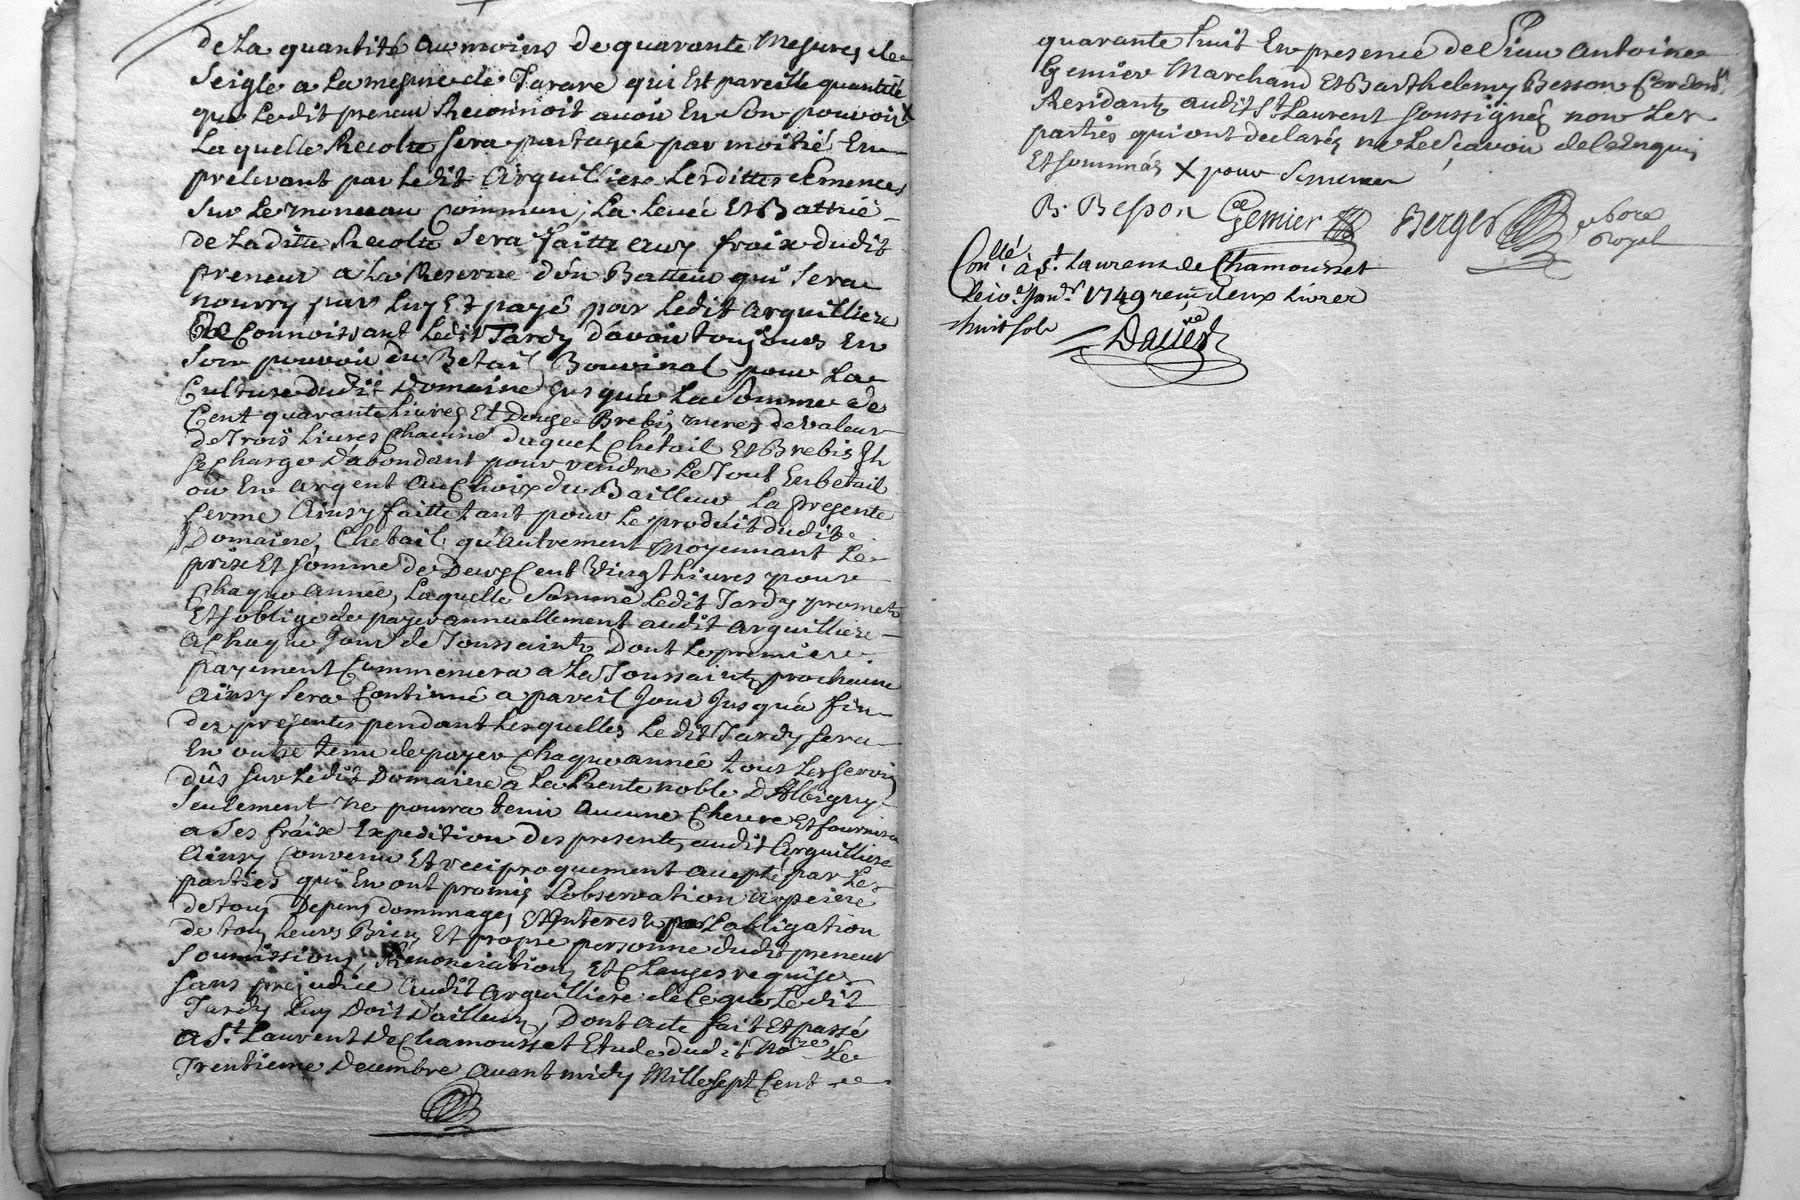 de La quantité au moins de quarante Mesures de
Seigle a La mesure de Tarare qui Est pareille quantité
que Ledit preneur Reconnoit avoir En Son pouvoir X
Laquelle Recolte Sera partagée par moitié En
prelevant par Ledit Arguilliere Lesdittes Semences
Sur Le monceau Commun, La Levée Et Battue
de Laditte Recolte Sera faitte aux fraix dudit
preneur a La Reserve d'un Batteur qui Sera
nourry par Luy Et payé par Ledit Arguilliere
Reconnoissant Ledit Tardy d'avoir toujours En
Son pouvoir du Betail Bouvinal pour La
Culture dudit Domaine Jusqu'a La Somme de
Cent quarante Livres Et Douze Brebis meres de valeur
de Trois Livres Chacune duquel Chetail Et Brebis Il
Se charge D'abondant pour rendre Le Tout En betail
ou En argent au Choix du Bailleur La presente
ferme Ainsy faitte tant pour Le produit dudit
Domaine, Chetail qu'Autrement Moyennant Le
prix Et Somme de Deux Cent Vingt Livres pour
Chaque année, Laquelle Somme Ledit Tardy promet
Et S'oblige de payer annuellement audit Arguilliere
a Chaque Jour de Toussaints Dont Le premier
payement Commencera a La Toussaint prochaine
Ainsy Sera Continué a pareil Jour Jusqu'a fin
des presentes pendant Lesquelles Ledit Tardy Sera
En outre tenu de payer Chaque année tous Les Servis
dûs Sur Ledit Domaine a La Rente noble D'Albigny
Seulement, ne pourra tenir Aucune Chevre Et fournira
a Ses fraix Expedition des presentes audit Arguilliere
Ainsy Convenu Et reciproquement accepté par Les
parties qui En ont promis L'observation a peine
de tous Depens dommages Et Interests par L'obligation
de tous Leurs Biens Et propre personne dudit preneur
Soumissions, Renonciations Et Clauses requises
Sans prejudice audit Arguilliere de Ce que Ledit
Tardy Luy Doit D'ailleurs, Dont acte fait Et passé
a St. Laurent De Chamousset Etude dudit Nore Le
Trentieme Decembre avant midy Mille Sept Cent
quarante huit En presence de Sieur Antoine
Gemier Marchand Et Barthelemy Besson Cordonr.
Residants audit St Laurent Soussignés non Les
parties qui ont declarés ne Le Sçavoir de ce Enquis
Et Sommés X pour Semence
B. Besson Gemier Berger Nore
Royal
Conllé. à St. Laurens de Chamousset
Le 10e. Janr. 1749 reçu deux Livres
huit Sols